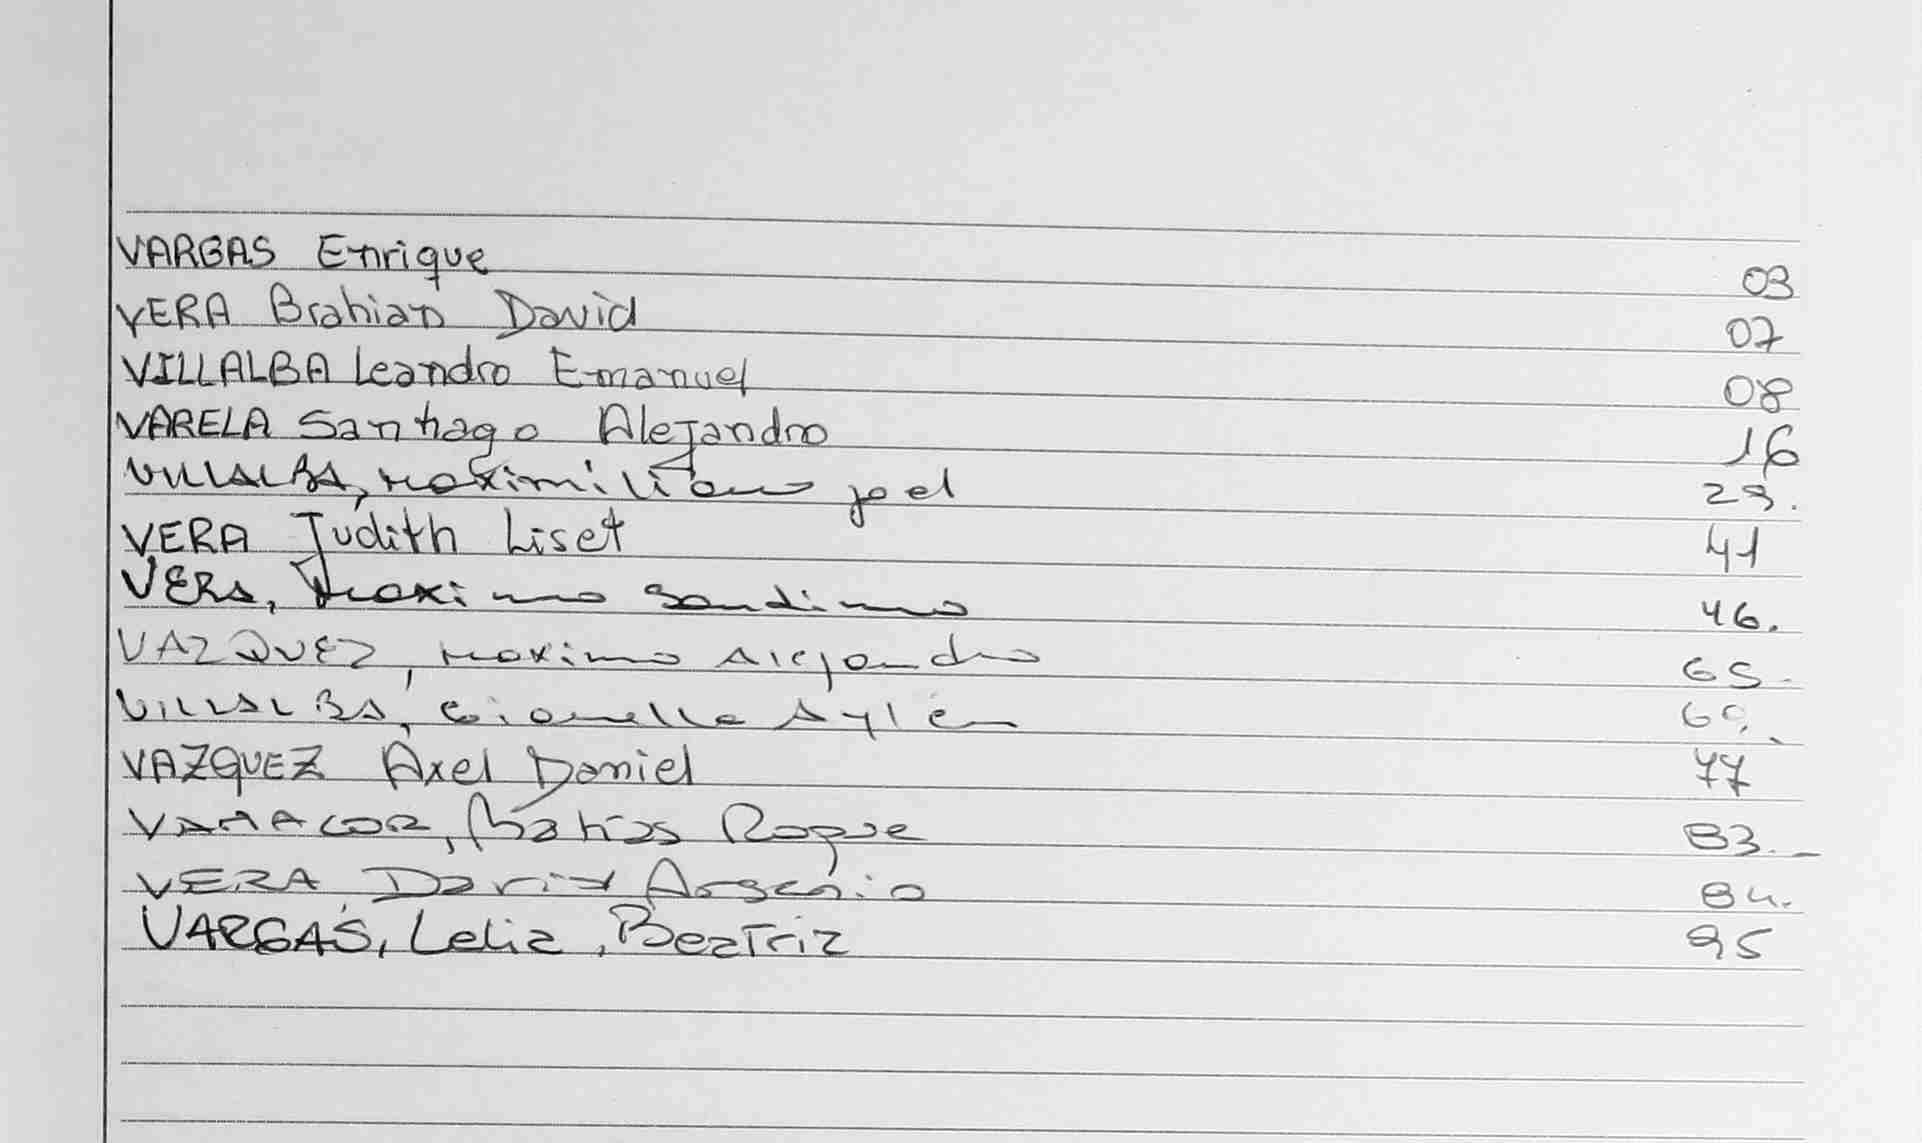 VARGAS Enrique 03
VERA Brahian David 07
VILLALBA Leandro Emanuel 08
VARELA Santiago Alejandro 16
VILLALBA, Maximiliano Joel 29.
VERA Judith Liset 41
VERA, Maximo 46.
VAZQUEZ, Maximo Alejandro 65.
VILLALBA, Gianella Aylén
VAZQUEZ Axel Daniel 77
VAMACOR, Matías Roque 83.
VERA, David Arsenio 84.
VARGAS, Lelia, Beatriz 95